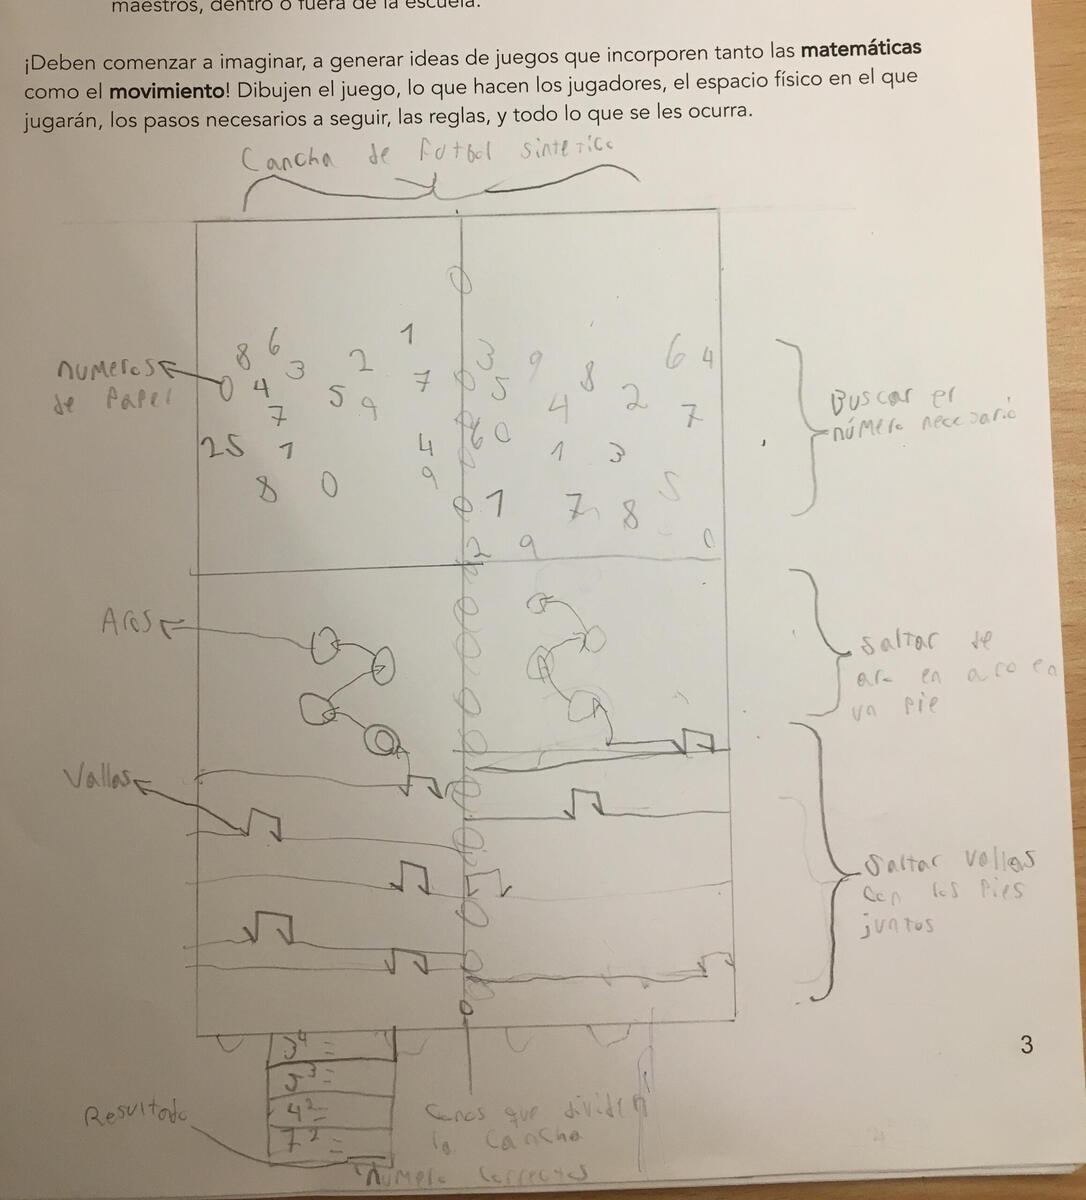 maestros, dentro o fuera de la escuela.
¡Deben comenzar a imaginar, a generar ideas de juegos que incorporen tanto las matemáticas
como el movimiento! Dibujen el juego, lo que hacen los jugadores, el espacio físico en el que
jugarán, los pasos necesarios a seguir, las reglas, y todo lo que se les ocurra.
Cancha de futbol sintetica
numeros
de papel
8 6 3 2 1
0 4 5 9 7
7
25 1 4
8 0 9
3 9 8 6 4
0 5 4 2 7
6 0 1 3
0 1 7 8 5
2 9 0
Buscar el
número necesario
Aros
Saltar de
en aro en
un pie
Vallas
Saltar vallas
con los pies
juntos
3⁴ =
5³ =
4² =
7² =
Resultado
Conos que dividen
la cancha
número correctos
3